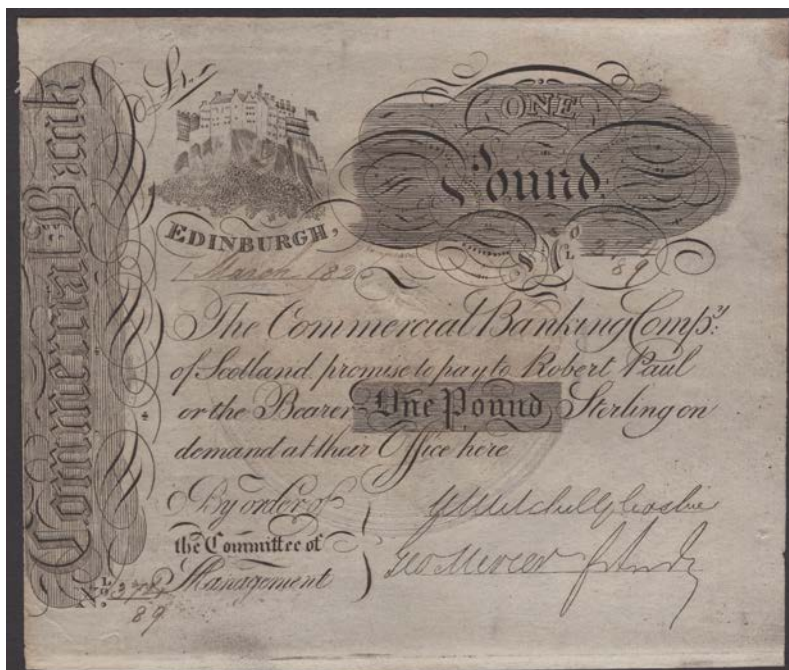 Commercial Bank
ONE
Pound.
EDINBURGH,
No
89
March 182
The Commercial Banking Compy:
of Scotland promise to pay to Robert Paul
or the Bearer One Pound Sterling on
demand at their Office here
By order of
the Committee of
Management
Geo Mercer
No
89